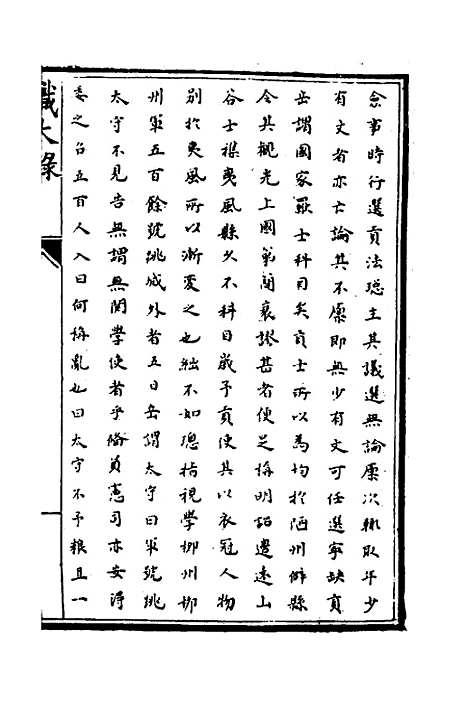 僉事時行選貢法璁主其議選無論廩次輒取年少
有文者亦亡論其不廩即無少有文可任選寧缺貢
岳謂國家取士科目矣貢士所以為均於陋州僻縣
令其觀光上國第簡裒謬甚者使足稱明詔邊遠山
谷士襍夷風縣久不科目歲予貢使其以衣冠人物
別於夷風所以漸變之也絀不如璁指視學柳州柳
州軍五百餘號跳城外者五日岳謂太守曰軍號跳
太守不見告無謂無関學使者乎偹員憲司亦安得
委之召五百人入曰何稱亂也曰太守不予粮且一
識大錄